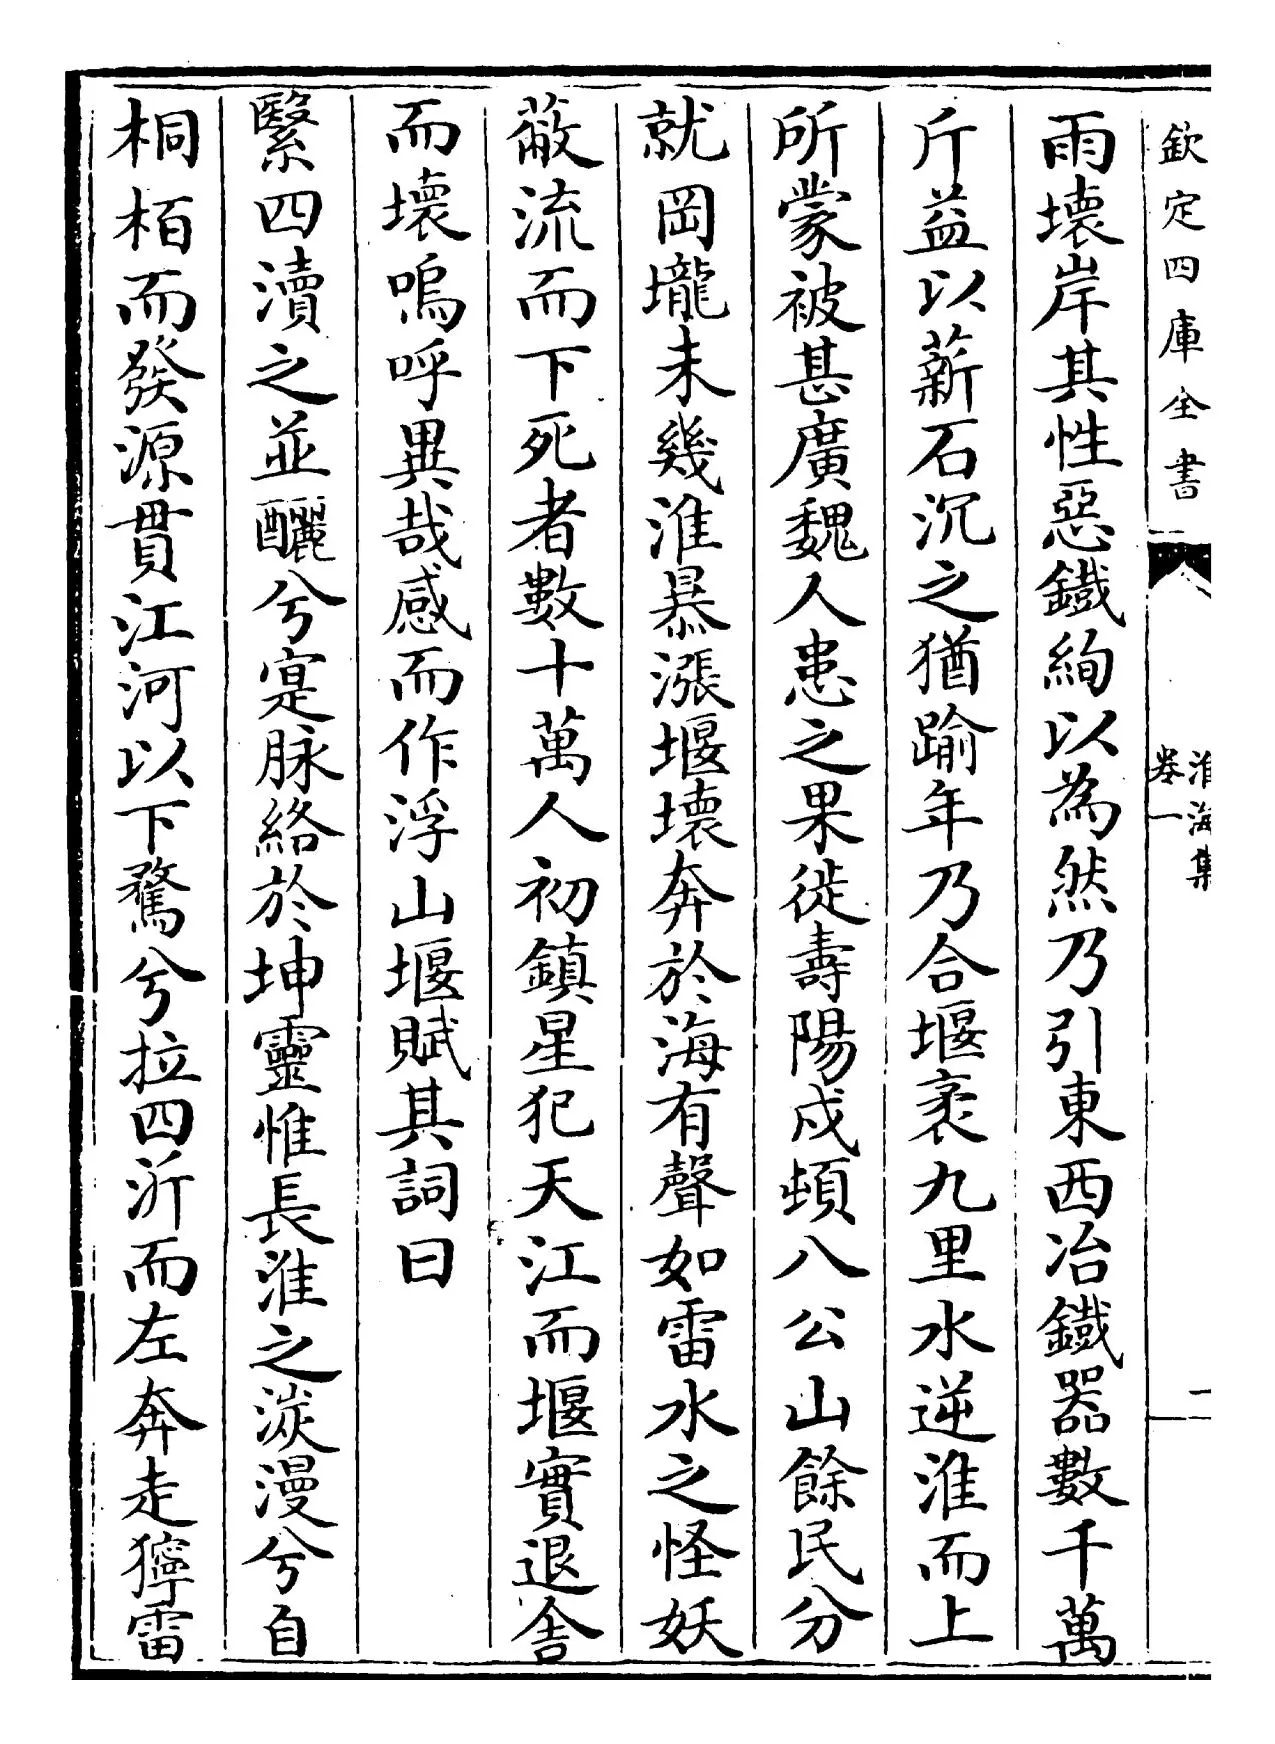 欽定四庫全書
淮海集
卷一
雨壞岸其性惡鐵絢以為然乃引東西冶鐵器數千萬
斤益以薪石沉之猶踰年乃合堰袤九里水逆淮而上
所蒙被甚廣魏人患之果徙壽陽戍頓八公山餘民分
就岡壠未幾淮暴漲堰壞奔於海有聲如雷水之怪妖
蔽流而下死者數十萬人初鎮星犯天江而堰實退舍
而壞嗚呼異哉感而作浮山堰賦其詞曰
繄四瀆之並釃兮寔脉絡於坤靈惟長淮之湠漫兮自
桐柏而發源貫江河以下騖兮拉四沂而左奔走獰雷